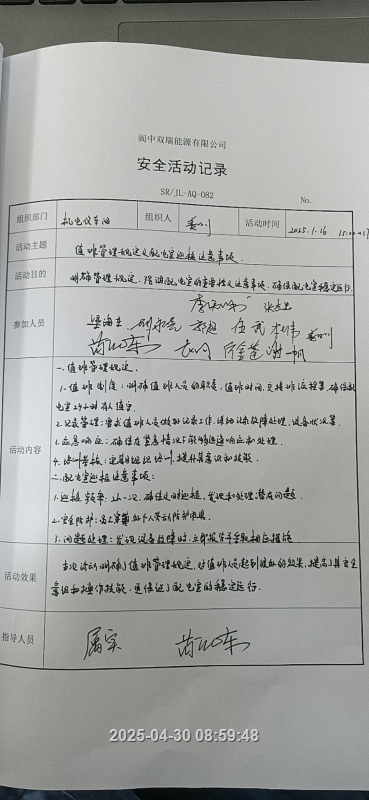 阆中双瑞能源有限公司
安全活动记录
SR/JL-AQ-082
No.
组织部门 机电仪车间 组织人 活动时间 2025.1.16
活动主题 值班管理规定及配电室巡检注意事项
活动目的 明确管理规定,强调配电室的重要性及注意事项,确保配电室稳定运行
参加人员
活动内容
一、值班管理规定:
1.值班制度:明确值班人员的职责,值班时间,交接班流程等,确保配电室24小时有人值守
2.记录管理:要求值班人员做好记录工作,详细记录故障处理,设备状况等.
3.应急响应:确保在紧急情况下能够迅速响应和处理.
4.培训考核:定期组织培训,提升其意识和技能.
二.配电室巡检注意事项:
1.巡检频率:2h一次,确保及时巡检,发现和处理潜在问题.
2.安全防护:员工穿戴好个人劳动防护用品
3.问题处理:发现设备故障时,立即报告并采取相应措施
活动效果 本次活动明确了值班管理规定,对值班人员起到
了其安全意识和操作技能,更保证了配电室的稳定运行.
指导人员 属实
2025-04-30 08:59:48